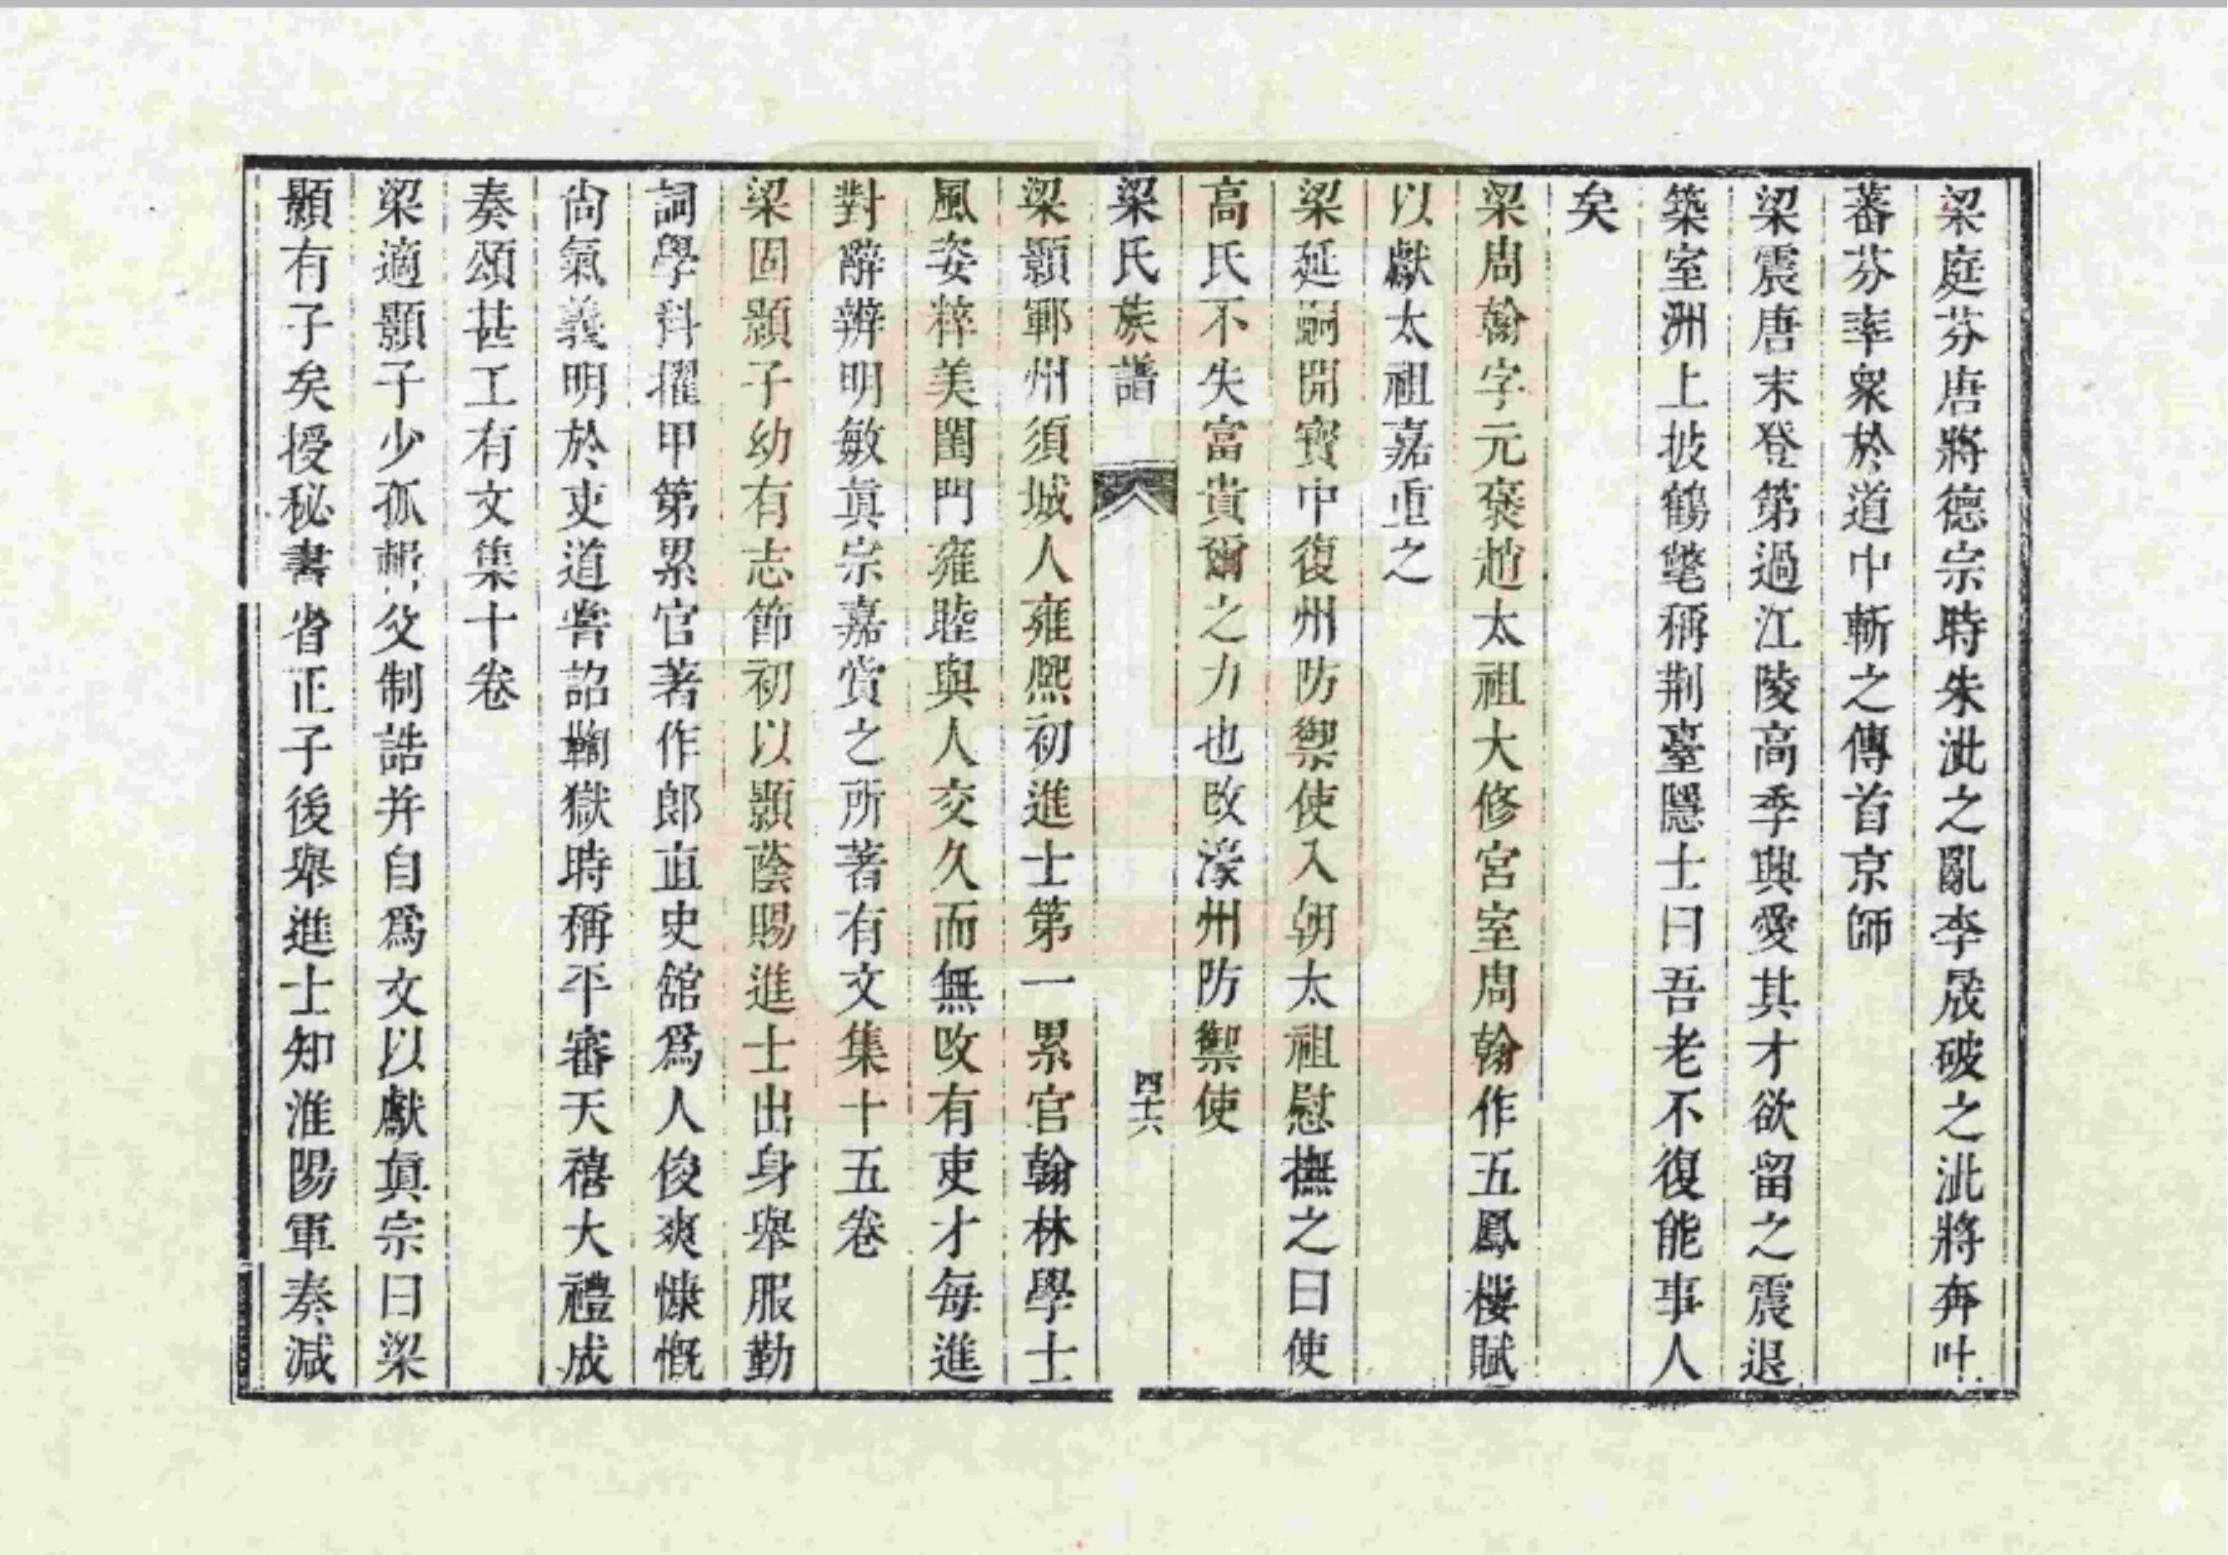 梁庭芬唐將德宗時朱泚之亂李晟破之泚將奔吐
蕃芬率衆於道中斬之傳首京師
梁震唐末登第過江陵高季興愛其才欲留之震退
築室洲上披鶴氅稱荆臺隱士曰吾老不復能事人
矣
梁周翰字元褒趙太祖大修宮室周翰作五鳳樓賦
以獻太祖嘉重之
梁延嗣開寶中復州防禦使入朝太祖慰撫之曰使
高氏不失富貴爾之力也改濠州防禦使
梁氏族譜
四十六
梁顥鄆州須城人雍熙初進士第一累官翰林學士
風姿粹美閨門雍睦與人交久而無改有吏才每進
對辭辨明敏眞宗嘉賞之所著有文集十五卷
梁固顥子幼有志節初以顥蔭賜進士出身舉服勤
詞學科擢甲第累官著作郎直史舘爲人俊爽慷慨
尙氣義明於吏道嘗詔鞫獄時稱平審天禧大禮成
奏頌甚工有文集十卷
梁適顥子少孤輯父制誥并自爲文以獻眞宗曰梁
顥有子矣授秘書省正子後舉進士知淮陽軍奏減